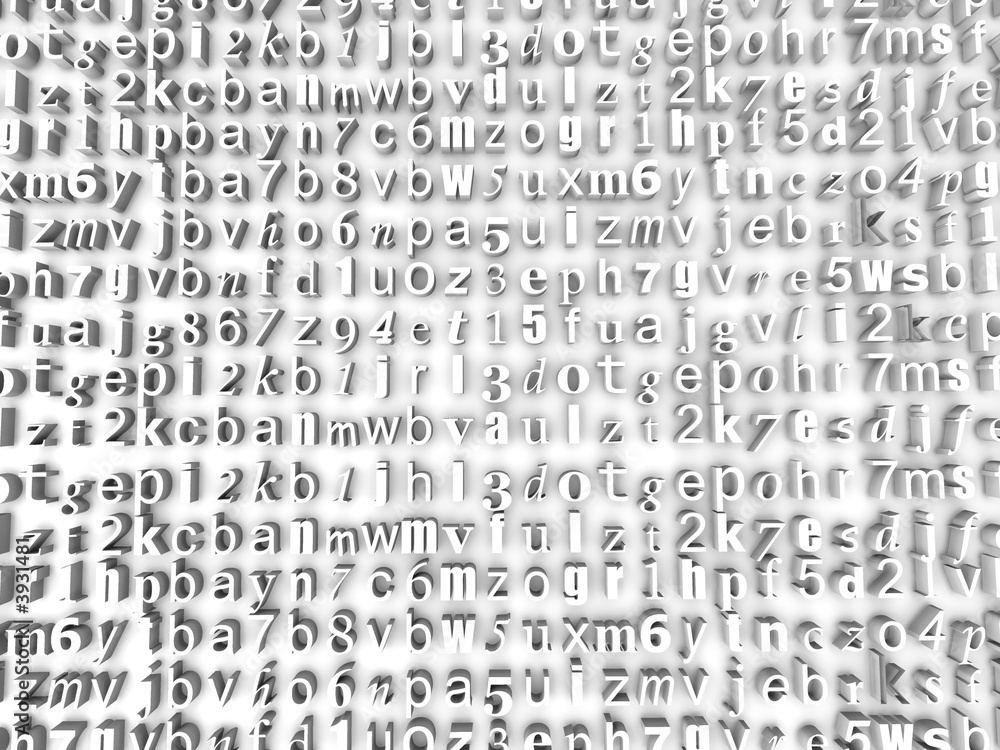 otgepi2kb1jbl3dotgepohr7msf
lzt2kcbanmwbvdulzt2k7esdjfe
gr1hpbayn7c6mzogr1hpf5d21vb
xm6ytba7b8vbw5uxm6ytnczo4pg
izmvjbvho6npa5uizmvjebrksf1
ph7gvbnfd1uoz3eph7gvre5wsbl
fuajg867z94et15fuajgvli2kcp
otgepi2kb1jrl3dotgepohr7msf
lzt2kcbanmwbvaulzt2k7esdjfe
otgepi2kb1jhl3dotgepohr7msf
lzt2kcbanmwmvfulzt2k7esdjf
r1hpbayn7c6mzogr1hpf5d21v
m6ytba7b8vbw5uxm6ytnczo4p
izmvjbvho6npa5uizmvjebrksf
h7gvbnfd1uoz3eph7gvre5wsb
Adobe Stock | #3931481